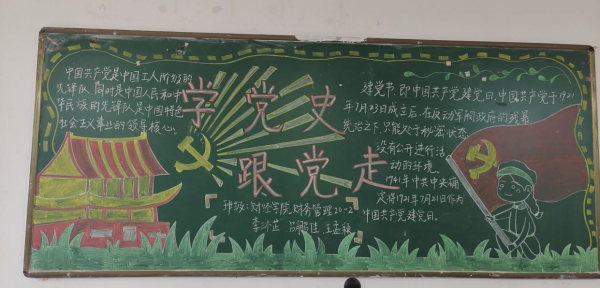 中国共产党是中国工人阶级的
先锋队,同时是中国人民和中
华民族的先锋队,是中国特色
社会主义事业的领导核心。
学党史
跟党走
班级:财经学院财务管理20-2
建党节,即中国共产党建党日,中国共产党于1921
年7月23日成立后,在反动军阀政府的残暴
统治之下,只能处于秘密状态,
没有公开进行活
动的环境。
1941年中共中央确
定将1921年7月21日作为
中国共产党建党日。